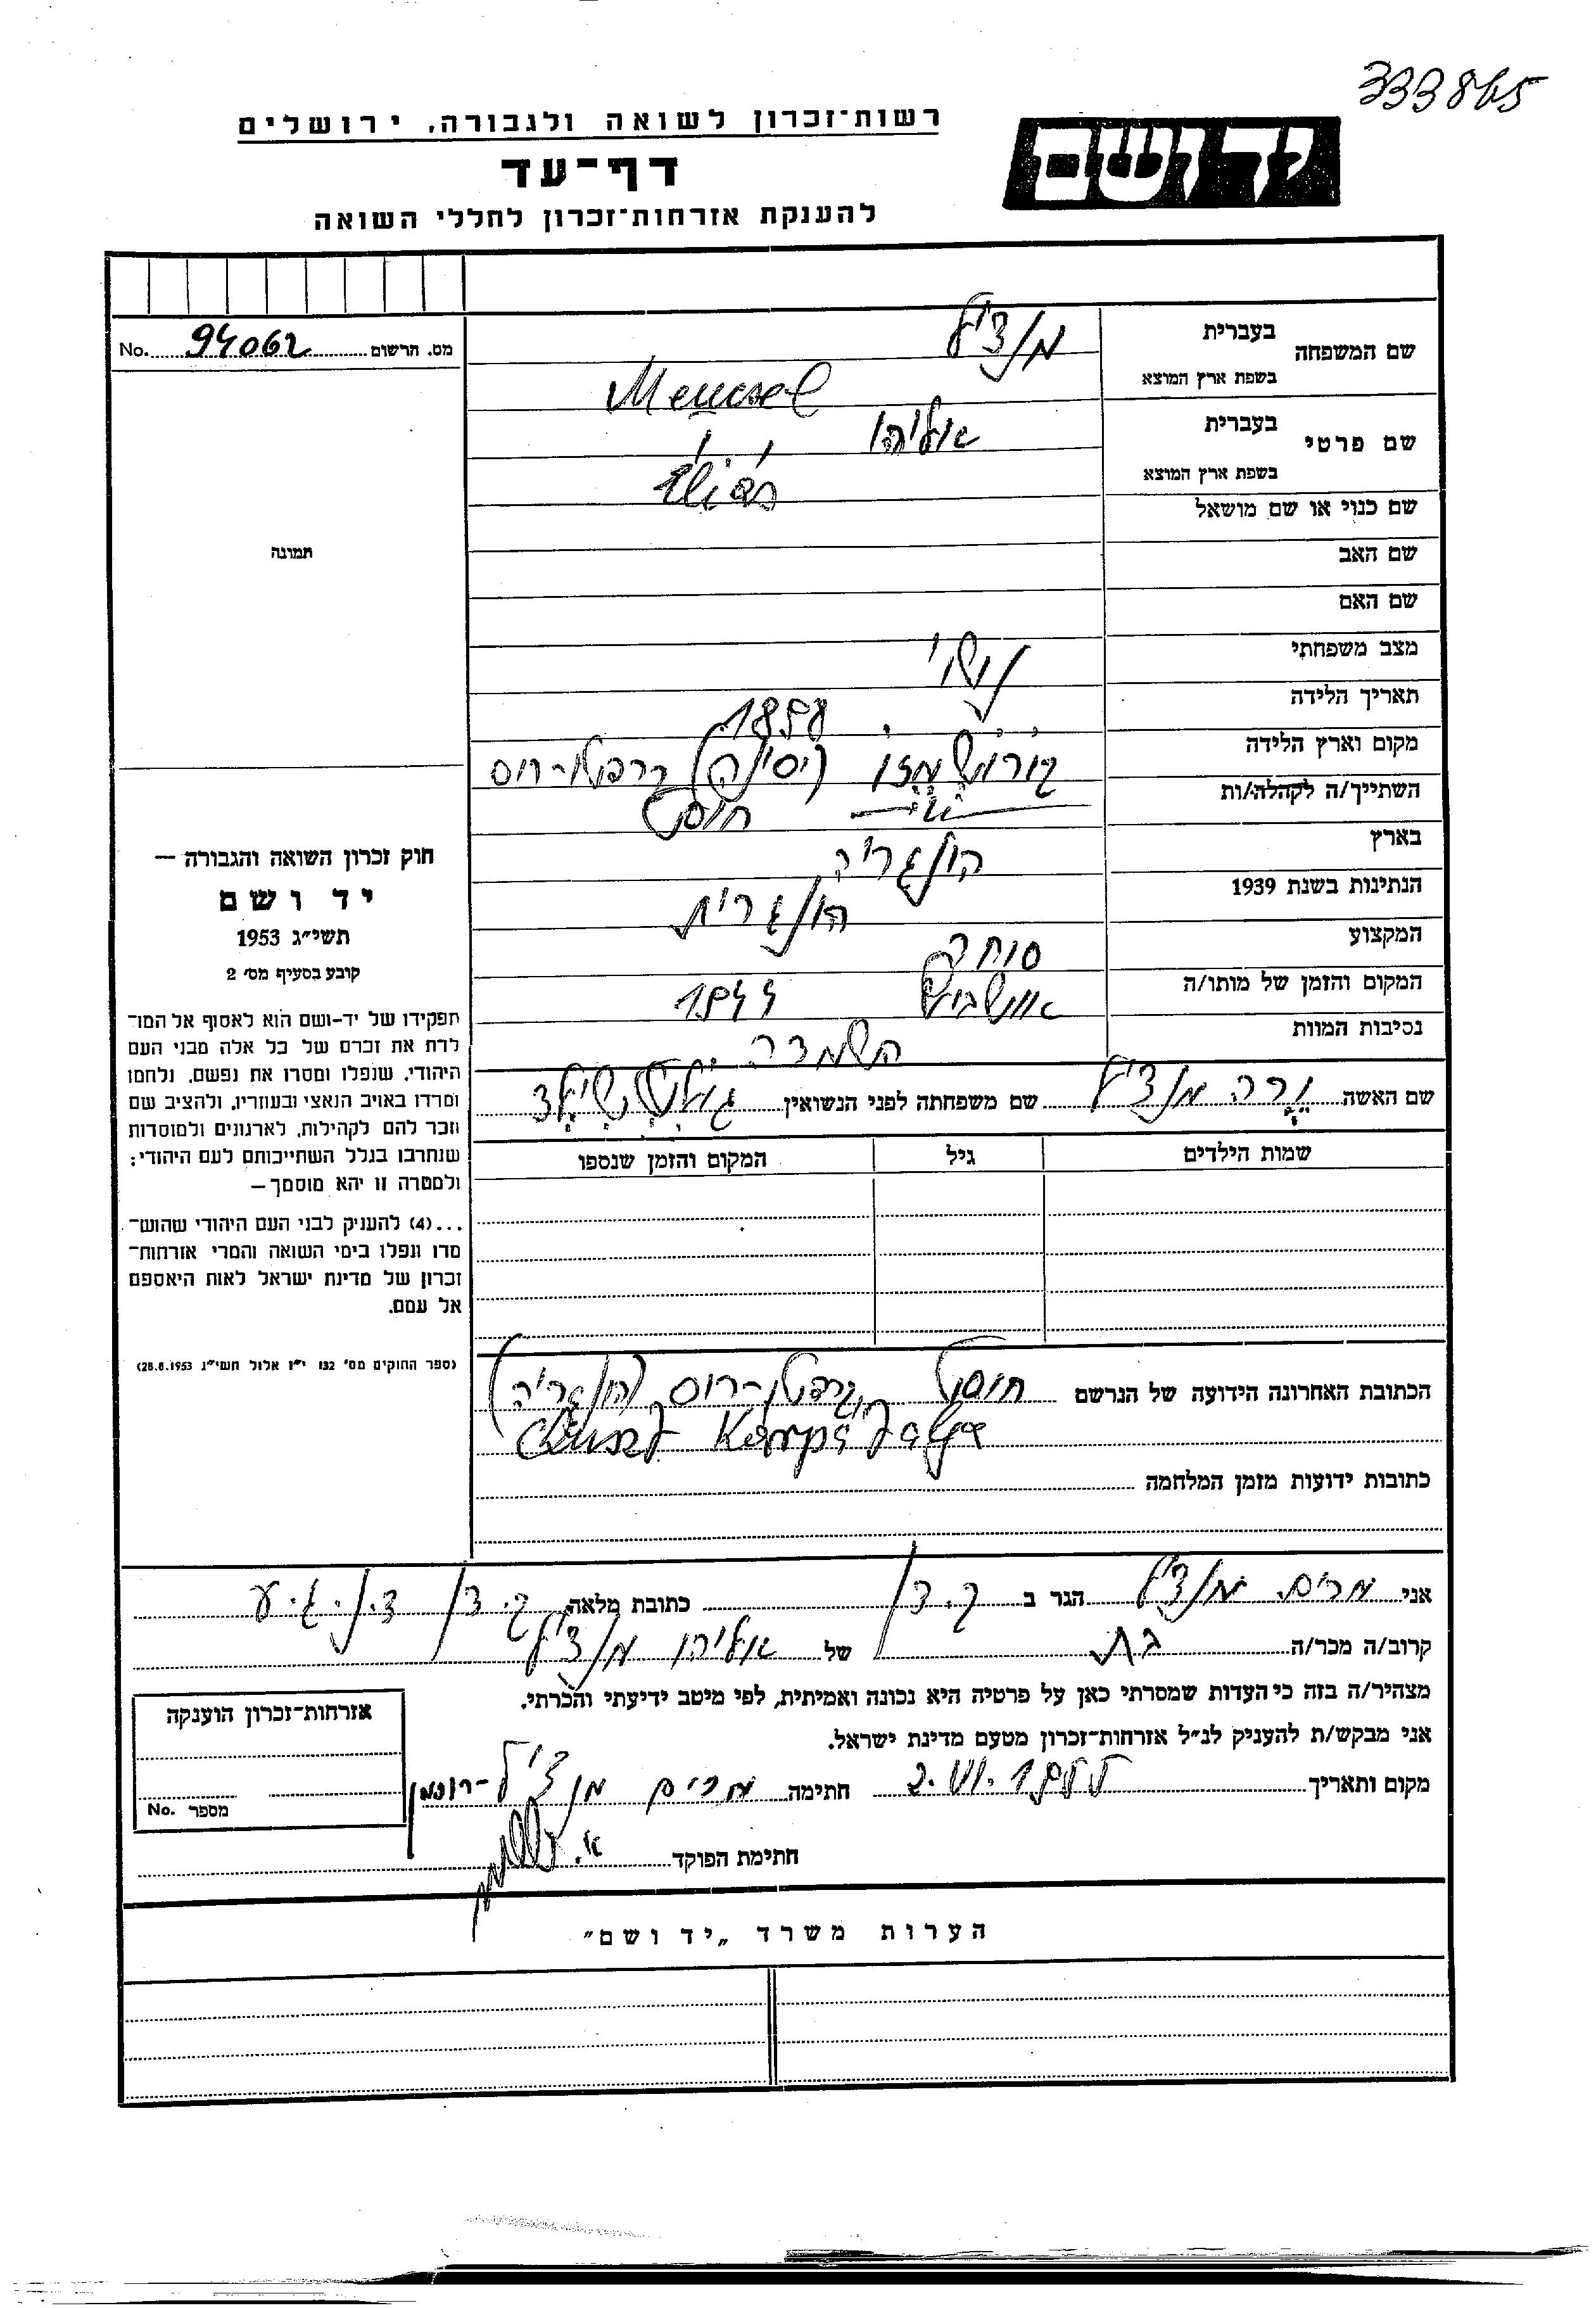 333865
רשות־זכרון לשואה ולגבורה, ירושלים
יד ושם
דף־עד
להענקת אזרחות־זכרון לחללי השואה
מס. הרשום 94062 No.
תמונה
שם המשפחה
בעברית מנציל
בשפת ארץ המוצא Menczel
שם פרטי
בעברית אליהו
בשפת ארץ המוצא Éliás
שם כנוי או שם מושאל
שם האב
שם האם
מצב משפחתי נשוי
תאריך הלידה 1858
מקום וארץ הלידה קורושמזו (יסינה) קרפטו-רוס
השתייך/ה לקהלה/ות חוסט
בארץ הונגריה
הנתינות בשנת 1939 הונגרית
המקצוע סוחר
המקום והזמן של מותו/ה אושביץ 1944
נסיבות המוות השמדה
שם האשה מנציל שם משפחתה לפני הנשואין
שמות הילדים גיל המקום והזמן שנספו
חוק זכרון השואה והגבורה —
יד ושם
תשי״ג 1953
קובע בסעיף מס׳ 2
תפקידו של יד-ושם הוא לאסוף אל המו־
לדת את זכרם של כל אלה מבני העם
היהודי, שנפלו ומסרו את נפשם, נלחמו
ומרדו באויב הנאצי ובעוזריו, ולהציב שם
וזכר להם לקהילות, לארגונים ולמוסדות
שנחרבו בגלל השתייכותם לעם היהודי;
ולמטרה זו יהא מוסמך—
...(4) להעניק לבני העם היהודי שהוש־
מדו ונפלו בימי השואה והמרי אזרחות־
זכרון של מדינת ישראל לאות היאספם
אל עמם.
(ספר החוקים מס׳ 132 י״ז אלול תשי״ג 28.8.1953)
הכתובת האחרונה הידועה של הנרשם חוסט קרפטו-רוס (הונגריה)
Chuszt Kárpátalja
כתובות ידועות מזמן המלחמה
אני מרים מנציל הגר ב ק. דן כתובת מלאה ק. דן ד.נ. ג.ע
קרוב/ה מכר/ה בת של אליהו מנציל
מצהיר/ה בזה כי העדות שמסרתי כאן על פרטיה היא נכונה ואמיתית, לפי מיטב ידיעתי והכרתי.
אני מבקש/ת להעניק לנ״ל אזרחות־זכרון מטעם מדינת ישראל.
מקום ותאריך חתימה מרים מנציל-
חתימת הפוקד
אזרחות־זכרון הוענקה
מספר No.
הערות משרד „יד ושם״